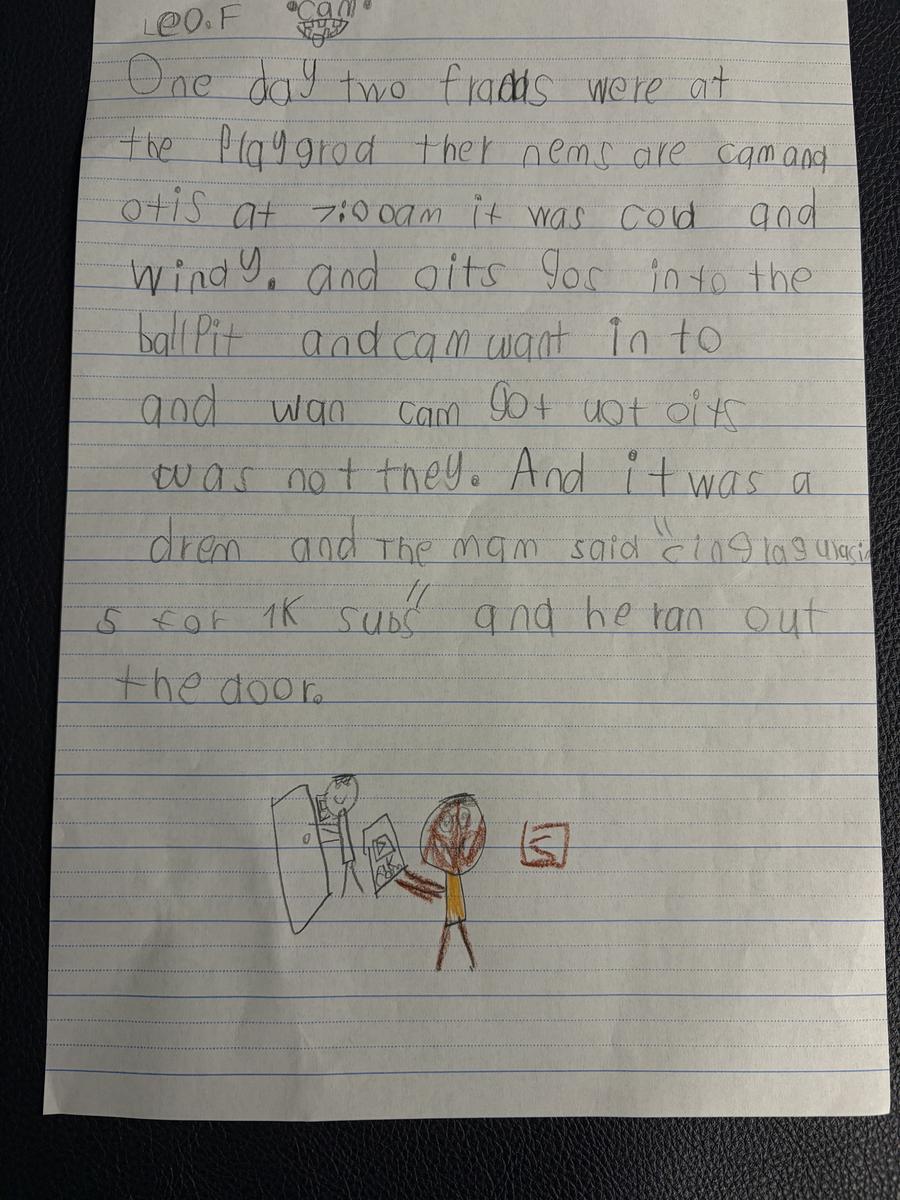 Leo.F "Cam"
One day two fradds were at
the Playgrod ther nems are cam and
otis at 7:00am it was cold and
windy. and oits gos in to the
ball Pit and cam want in to
and wan cam got uot oits
was not they. And it was a
drem and The mam said "cingragulasin
s for 1K subs" and he ran out
the door.